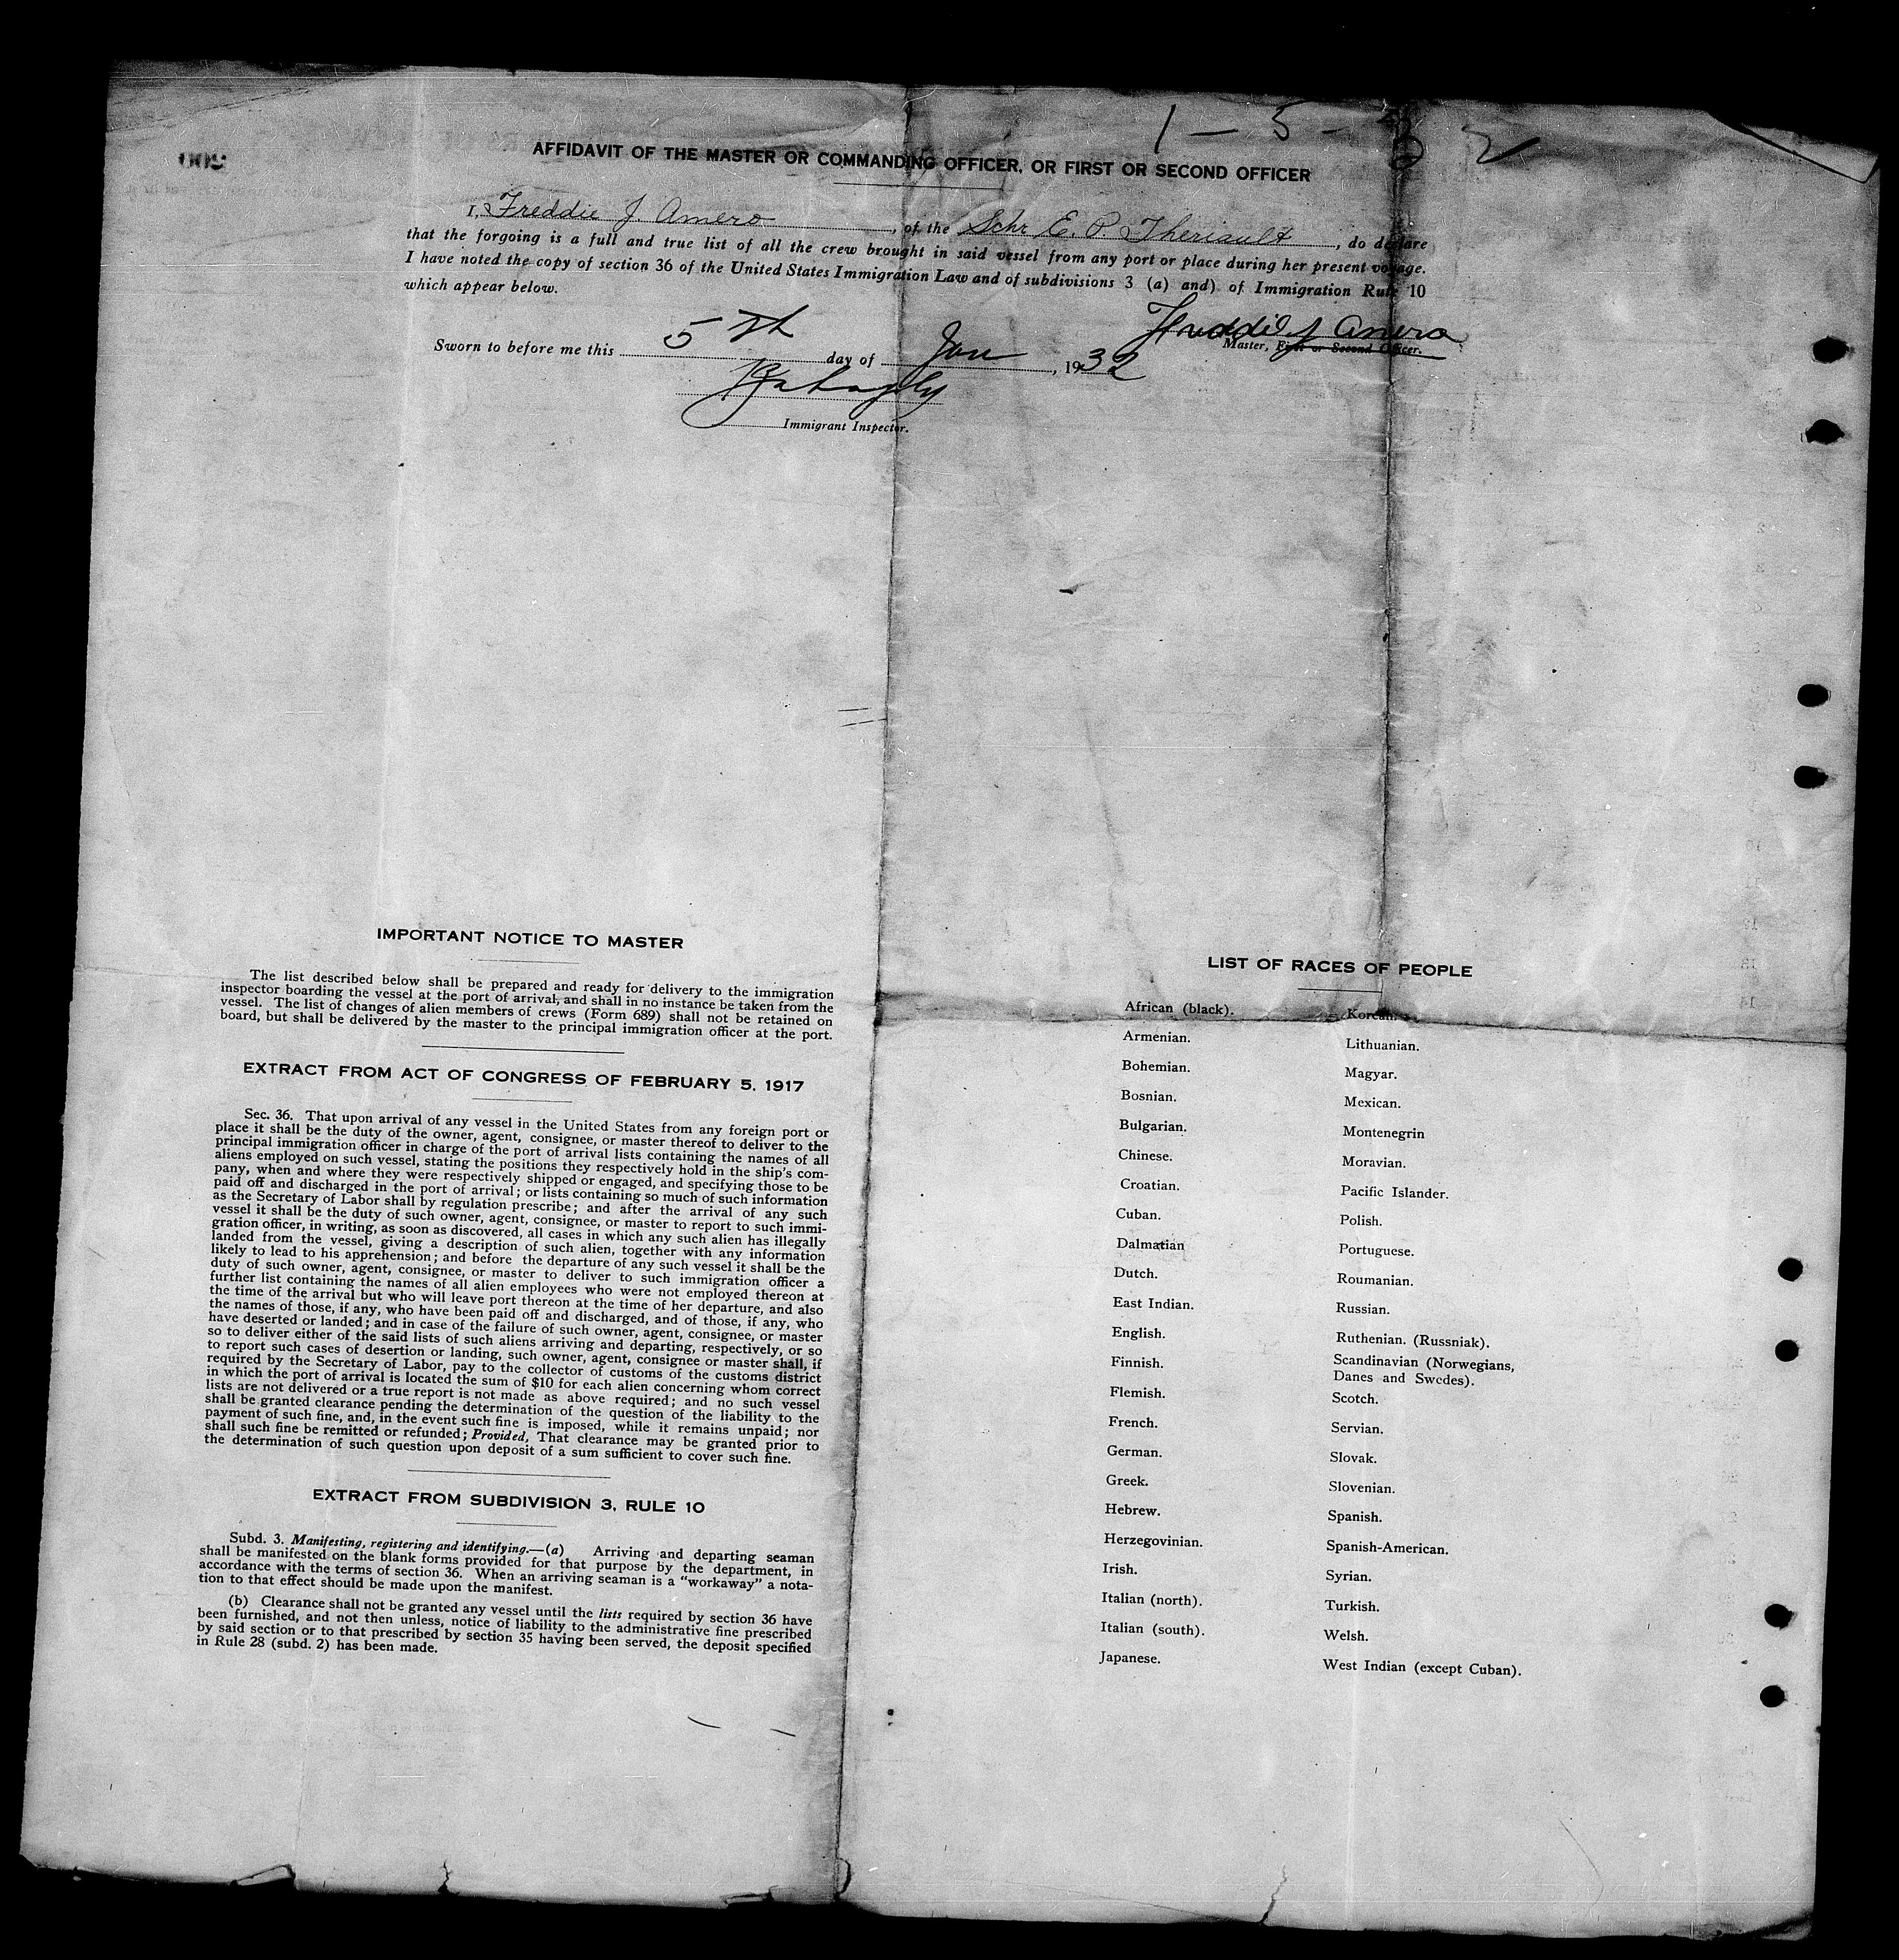 1-5-32
AFFIDAVIT OF THE MASTER OR COMMANDING OFFICER, OR FIRST OR SECOND OFFICER
I, Freddie J. Amero, of the Schr E. P. Theriault, do declare
that the forgoing is a full and true list of all the crew brought in said vessel from any port or place during her present voyage.
I have noted the copy of section 36 of the United States Immigration Law and of subdivisions 3 (a) and) of Immigration Rule 10
which appear below.
Freddie J Amero
Master, First or Second Officer.
Sworn to before me this 5th day of Jan, 1932
Immigrant Inspector.
IMPORTANT NOTICE TO MASTER
The list described below shall be prepared and ready for delivery to the immigration
inspector boarding the vessel at the port of arrival, and shall in no instance be taken from the
vessel. The list of changes of alien members of crews (Form 689) shall not be retained on
board, but shall be delivered by the master to the principal immigration officer at the port.
EXTRACT FROM ACT OF CONGRESS OF FEBRUARY 5, 1917
Sec. 36. That upon arrival of any vessel in the United States from any foreign port or
place it shall be the duty of the owner, agent, consignee, or master thereof to deliver to the
principal immigration officer in charge of the port of arrival lists containing the names of all
aliens employed on such vessel, stating the positions they respectively hold in the ship's com-
pany, when and where they were respectively shipped or engaged, and specifying those to be
paid off and discharged in the port of arrival; or lists containing so much of such information
as the Secretary of Labor shall by regulation prescribe; and after the arrival of any such
vessel it shall be the duty of such owner, agent, consignee, or master to report to such immi-
gration officer, in writing, as soon as discovered, all cases in which any such alien has illegally
landed from the vessel, giving a description of such alien, together with any information
likely to lead to his apprehension; and before the departure of any such vessel it shall be the
duty of such owner, agent, consignee, or master to deliver to such immigration officer a
further list containing the names of all alien employees who were not employed thereon at
the time of the arrival but who will leave port thereon at the time of her departure, and also
the names of those, if any, who have been paid off and discharged, and of those, if any, who
have deserted or landed; and in case of the failure of such owner, agent, consignee, or master
so to deliver either of the said lists of such aliens arriving and departing, respectively, or so
to report such cases of desertion or landing, such owner, agent, consignee or master shall, if
required by the Secretary of Labor, pay to the collector of customs of the customs district
in which the port of arrival is located the sum of $10 for each alien concerning whom correct
lists are not delivered or a true report is not made as above required; and no such vessel
shall be granted clearance pending the determination of the question of the liability to the
payment of such fine, and, in the event such fine is imposed, while it remains unpaid; nor
shall such fine be remitted or refunded; Provided, That clearance may be granted prior to
the determination of such question upon deposit of a sum sufficient to cover such fine.
EXTRACT FROM SUBDIVISION 3, RULE 10
Subd. 3. Manifesting, registering and identifying.—(a) Arriving and departing seaman
shall be manifested on the blank forms provided for that purpose by the department, in
accordance with the terms of section 36. When an arriving seaman is a "workaway" a nota-
tion to that effect should be made upon the manifest.
(b) Clearance shall not be granted any vessel until the lists required by section 36 have
been furnished, and not then unless, notice of liability to the administrative fine prescribed
by said section or to that prescribed by section 35 having been served, the deposit specified
in Rule 28 (subd. 2) has been made.
LIST OF RACES OF PEOPLE
African (black).
Armenian.
Bohemian.
Bosnian.
Bulgarian.
Chinese.
Croatian.
Cuban.
Dalmatian
Dutch.
East Indian.
English.
Finnish.
Flemish.
French.
German.
Greek.
Hebrew.
Herzegovinian.
Irish.
Italian (north).
Italian (south).
Japanese.
Korean.
Lithuanian.
Magyar.
Mexican.
Montenegrin
Moravian.
Pacific Islander.
Polish.
Portuguese.
Roumanian.
Russian.
Ruthenian. (Russniak).
Scandinavian (Norwegians,
Danes and Swedes).
Scotch.
Servian.
Slovak.
Slovenian.
Spanish.
Spanish-American.
Syrian.
Turkish.
Welsh.
West Indian (except Cuban).